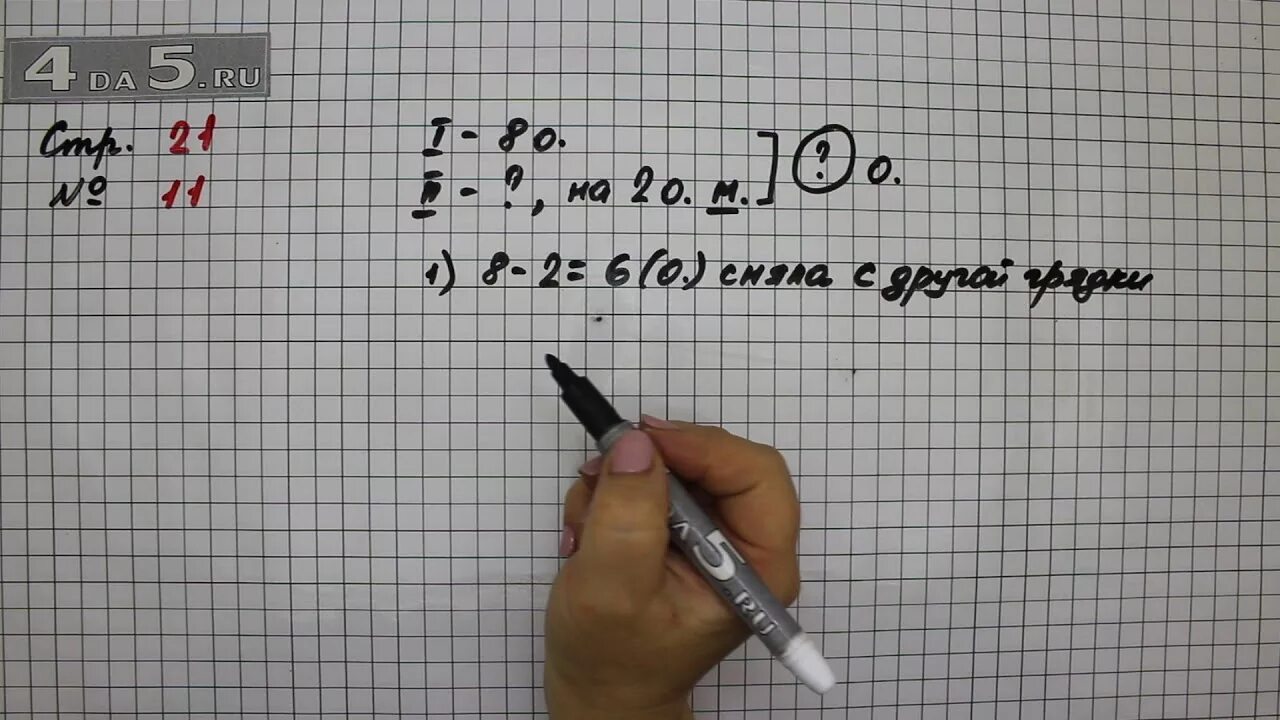 4DA5.RU
Стр. 21
№ 11
I - 8 о.
II - ?, на 2 о. м.
? о.
1) 8 - 2 = 6 (о.) сняла с другой грядки
ДА5.RU